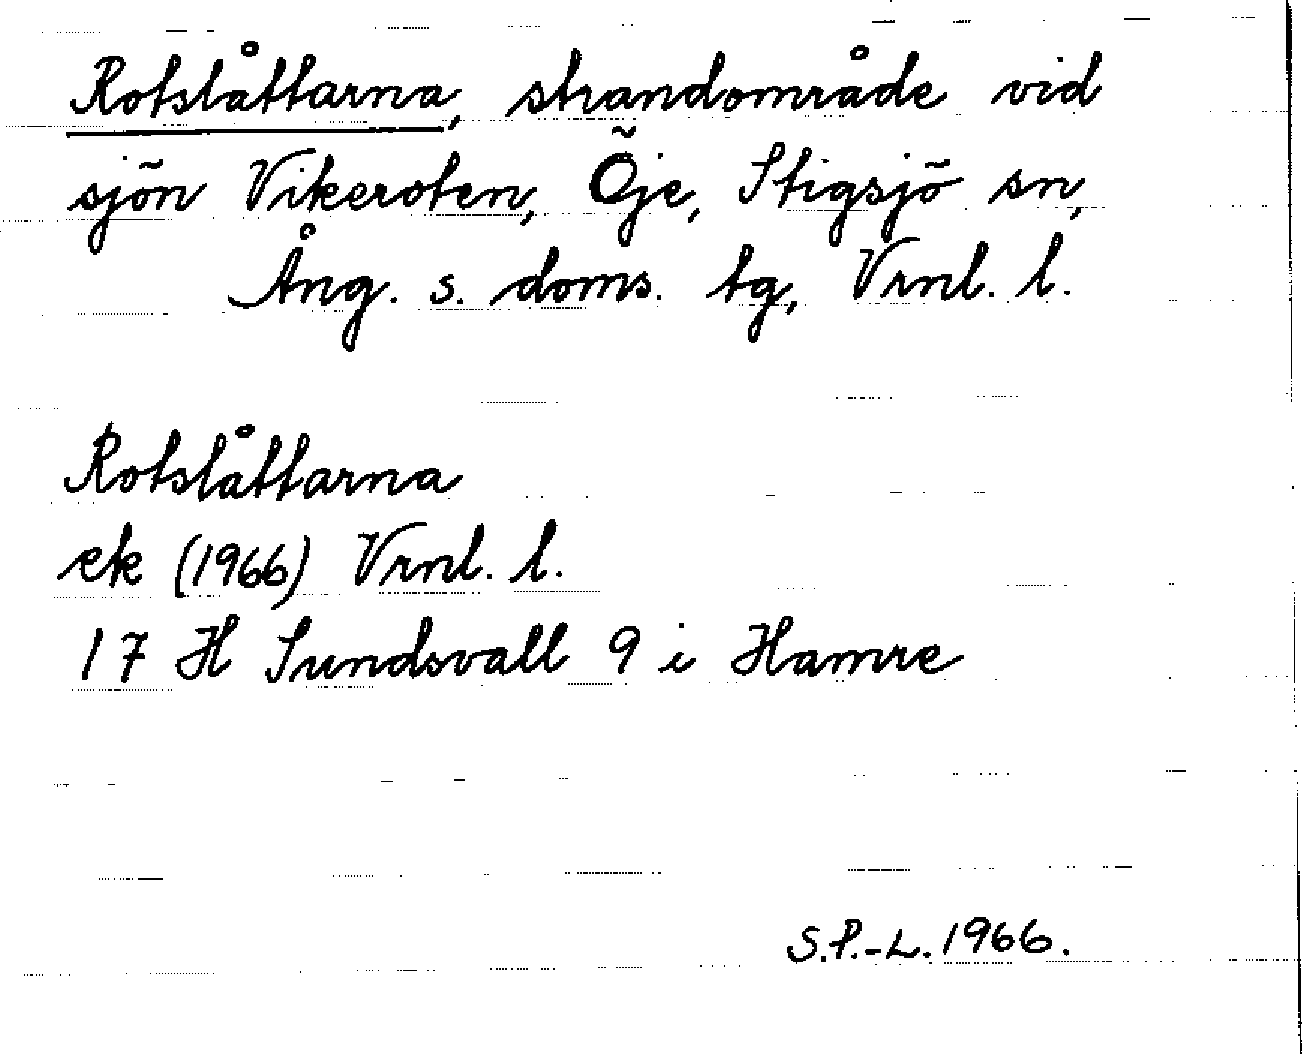 Rotslåttarna, strandområde vid
sjön Vikeroten, Öje, Stigsjö sn,
Ång. s. doms. tg, Vrnl. l.
Rotslåttarna
ek (1966) Vrnl. l.
17 H Sundsvall 9 i Hamre
S.P.-L. 1966.